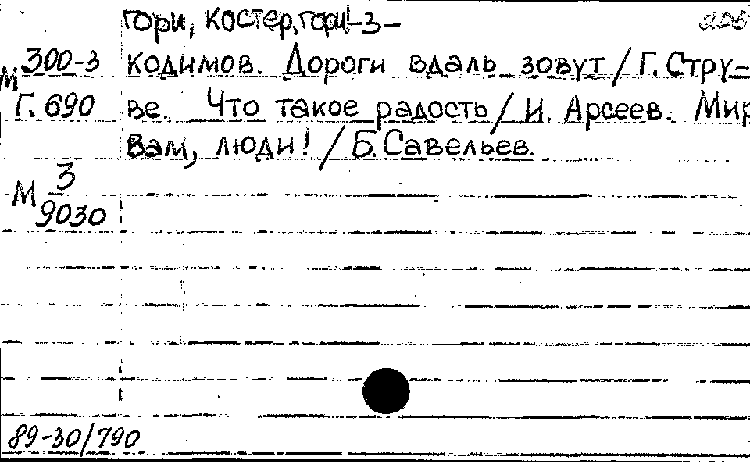 гори, костер, гори! -3-
М 300-3 кодимов. Дороги вдаль зовут / Г. Стру-
Г. 690 ве. Что такое радость / И. Арсеев. Мир
вам, люди! / Б. Савельев.
М 3
9030
89-30/790